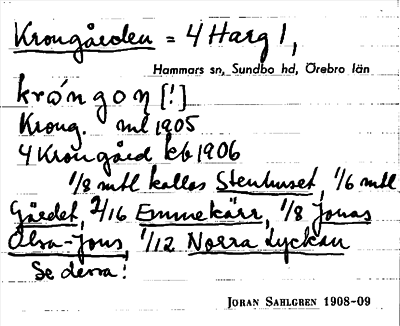 Krongården = 4 Harg 1,
Hammars sn, Sundbo hd, Örebro län
krǿngoṇ [!]
Krong. ml 1905
4 Krongård kb 1906
1/8 mtl kallas Stenhuset, 1/6 mtl
Gärdet, 2/16 Emmekärr, 1/8 Jonas
Olsa-Jons, 1/12 Norra Lyckan
Se dessa!
JORAN SAHLGREN 1908-09